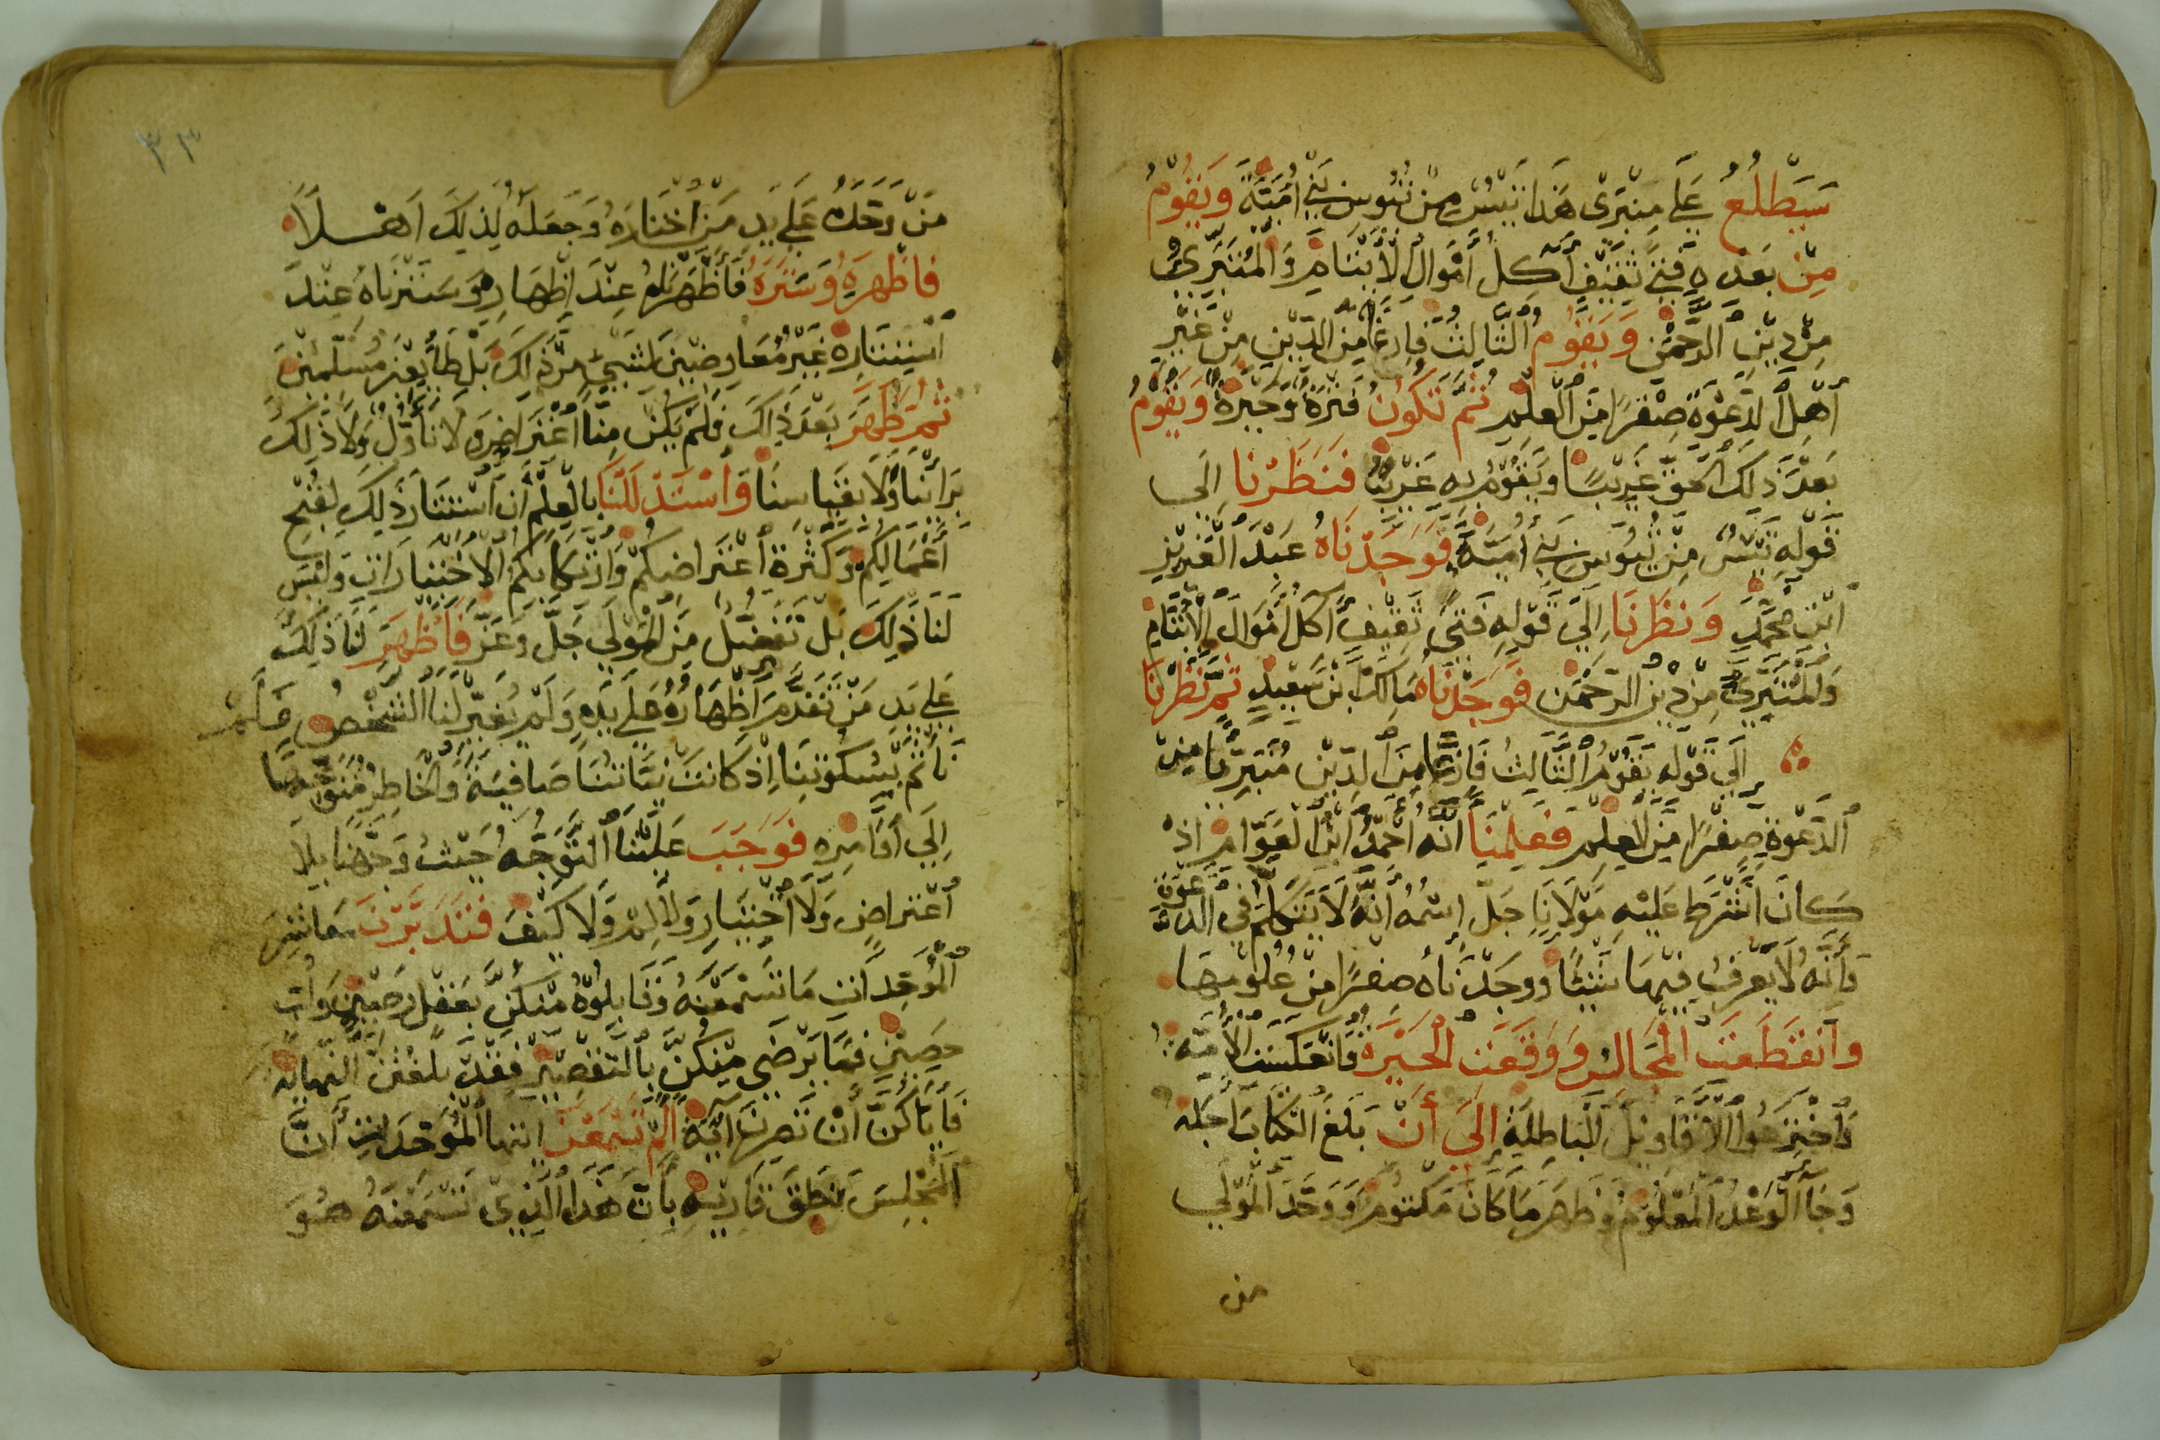 سَيَطْلُعُ عَلَى مِنْبَرِى هَذَا تَيْسٌ مِنْ تُيُوسِ بَنِي أُمَيَّةَ وَيَقُومُ
مِنْ بَعْدِهِ فَتَى ثَقِيفٍ أَكِلُ أَمْوَالِ الْأَيْتَامِ وَالْمُتَبَرِّىُ
مِنْ دِيْنِ الرَّحْمٰنِ وَيَقُومُ الثَّالِثُ فَارِغًا مِنَ الدِّيْنِ مِنْ غَيْرِ
أَهْلِ الدَّعْوَةِ صِفْرًا مِنَ الْعِلْمِ ثُمَّ تَكُونُ فَتْرَةٌ وَحَيْرَةٌ وَيَقُومُ
بَعْدَ ذَلِكَ الْحَقُّ غَرِيْبًا وَيَقُوْمُ بِهِ غَرِيْبٌ فَنَظَرْنَا إِلَى
قَوْلِهِ تَيْسٌ مِنْ تُيُوسِ بَنِي أُمَيَّةَ فَوَجَدْنَاهُ عَبْدَ الْعَزِيْزِ
ابْنَ مُحَمَّدٍ وَنَظَرْنَا إِلَى قَوْلِهِ فَتَى ثَقِيْفٍ أَكِلُ أَمْوَالِ الْأَيْتَامِ
وَالْمُتَبَرِّىُ مِنْ دِيْنِ الرَّحْمٰنِ فَوَجَدْنَاهُ مَالِكَ بْنَ سَعِيْدٍ ثُمَّ نَظَرْنَا
إِلَى قَوْلِهِ يَقُوْمُ الثَّالِثُ فَارِغًا مِنَ الدِّيْنِ مُتَبَرِّيًا مِنَ
الدَّعْوَةِ صِفْرًا مِنَ الْعِلْمِ فَعَلِمْنَا أَنَّهُ أَحْمَدُ ابْنُ الْعَوَّامِ إِذْ
كَانَ اشْتَرَطَ عَلَيْهِ مَوْلَانَا جَلَّ اسْمُهُ أَنَّهُ لَا يَتَكَلَّمُ فِي الدَّعْوَةِ
وَأَنَّهُ لَا يَعْرِفُ فِيْهَا شَيْئًا وَوَجَدْنَاهُ صِفْرًا مِنْ عُلُوْمِهَا
وَانْقَطَعَتِ الْمَجَالِسُ وَوَقَعَتِ الْحَيْرَةُ فَانْعَكَسَتِ الْأُمَّةُ
وَاخْتَرَعُوا الْأَقَاوِيْلَ الْبَاطِلَةَ إِلَى أَنْ بَلَغَ الْكِتَابُ أَجَلَهُ
وَجَا الْوَعْدُ الْمَعْلُوْمُ وَظَهَرَ مَا كَانَ مَكْتُوْمًا وَوَحَّدَ الْمَوْلَى
من
٣٣
مَنْ وَحَّدَهُ عَلَى يَدِ مَنِ اخْتَارَهُ وَجَعَلَهُ لِذَلِكَ أَهْلًا
فَاظْهَرَهُ وَسَتَرَهُ فَأَظْهَرْنَاهُ عِنْدَ إِظْهَارِهِ وَسَتَرْنَاهُ عِنْدَ
اسْتِتَارِهِ غَيْرَ مُعَارِضِيْنَ لِشَيْءٍ مِنْ ذَلِكَ بَلْ طَايِعِيْنَ مُسَلِّمِيْنَ
ثُمَّ ظَهَرَ بَعْدَ ذَلِكَ فَلَمْ يَكُنْ مِنَّا اعْتَرَاضٌ وَلَا تَأَوُّلٌ وَلَا ذَلِكَ
بِرَأْيِنَا وَلَا بِقِيَاسِنَا وَاسْتَدْلَلْنَا بِالْعِلْمِ أَنَّ اسْتِتَارَ ذَلِكَ لِقُبْحِ
أَعْمَالِكُمْ وَكَثْرَةِ اعْتِرَاضِكُمْ وَارْتِكَابِكُمُ الْاِخْتِيَارَاتِ وَلَيْسَ
لَنَا ذَلِكَ بَلْ تَفَضُّلٌ مِنَ الْمَوْلَى جَلَّ وَعَزَّ فَأَظْهَرَ لَنَا ذَلِكَ
عَلَى يَدِ مَنْ تَقَدَّمَ إِظْهَارُهُ عَلَى يَدِهِ وَلَمْ يُغَيِّرْ لَنَا الشَّخْصَ فَلَمْ
نَأْثَمْ بِسُكُوتِنَا إِذْ كَانَتْ نِيَّاتُنَا صَافِيَةً وَالْخَاطِرُ مُتَوَجِّهًا
إِلَى أَوَامِرِهِ فَوَجَبَ عَلَيْنَا التَّوَجُّهُ حَيْثُ وَجَّهَنَا بِلَا
اعْتِرَاضٍ وَلَا اخْتِيَارٍ وَلَا لِمْ وَلَا كَيْفَ فَتَدَبَّرْنَ مَعَاشِرَ
الْمُوَحِّدَاتِ مَا تَسْمَعْنَهُ وَقَابِلُوْهُ مِنْكُنَّ بِعَقْلٍ رَصِيْنٍ وَرَأْيٍ
حَصِيْنٍ فَمَا يُرْضَى مِنْكُنَّ بِالتَّقْصِيْرِ فَقَدْ بَلَغْتُنَّ النِّهَايَةَ
فَإِيَّاكُنَّ أَنْ تَضْرِبْنَ آيَةً أَلَمْ تَسْمَعْنَ ايتها الْمُوَحِّدَاتُ أَنَّ
الْمَجْلِسَ نَطَقَ قَارِيْهِ بِأَنَّ هَذَا الَّذِى تَسْمَعْنَهُ هُوَ